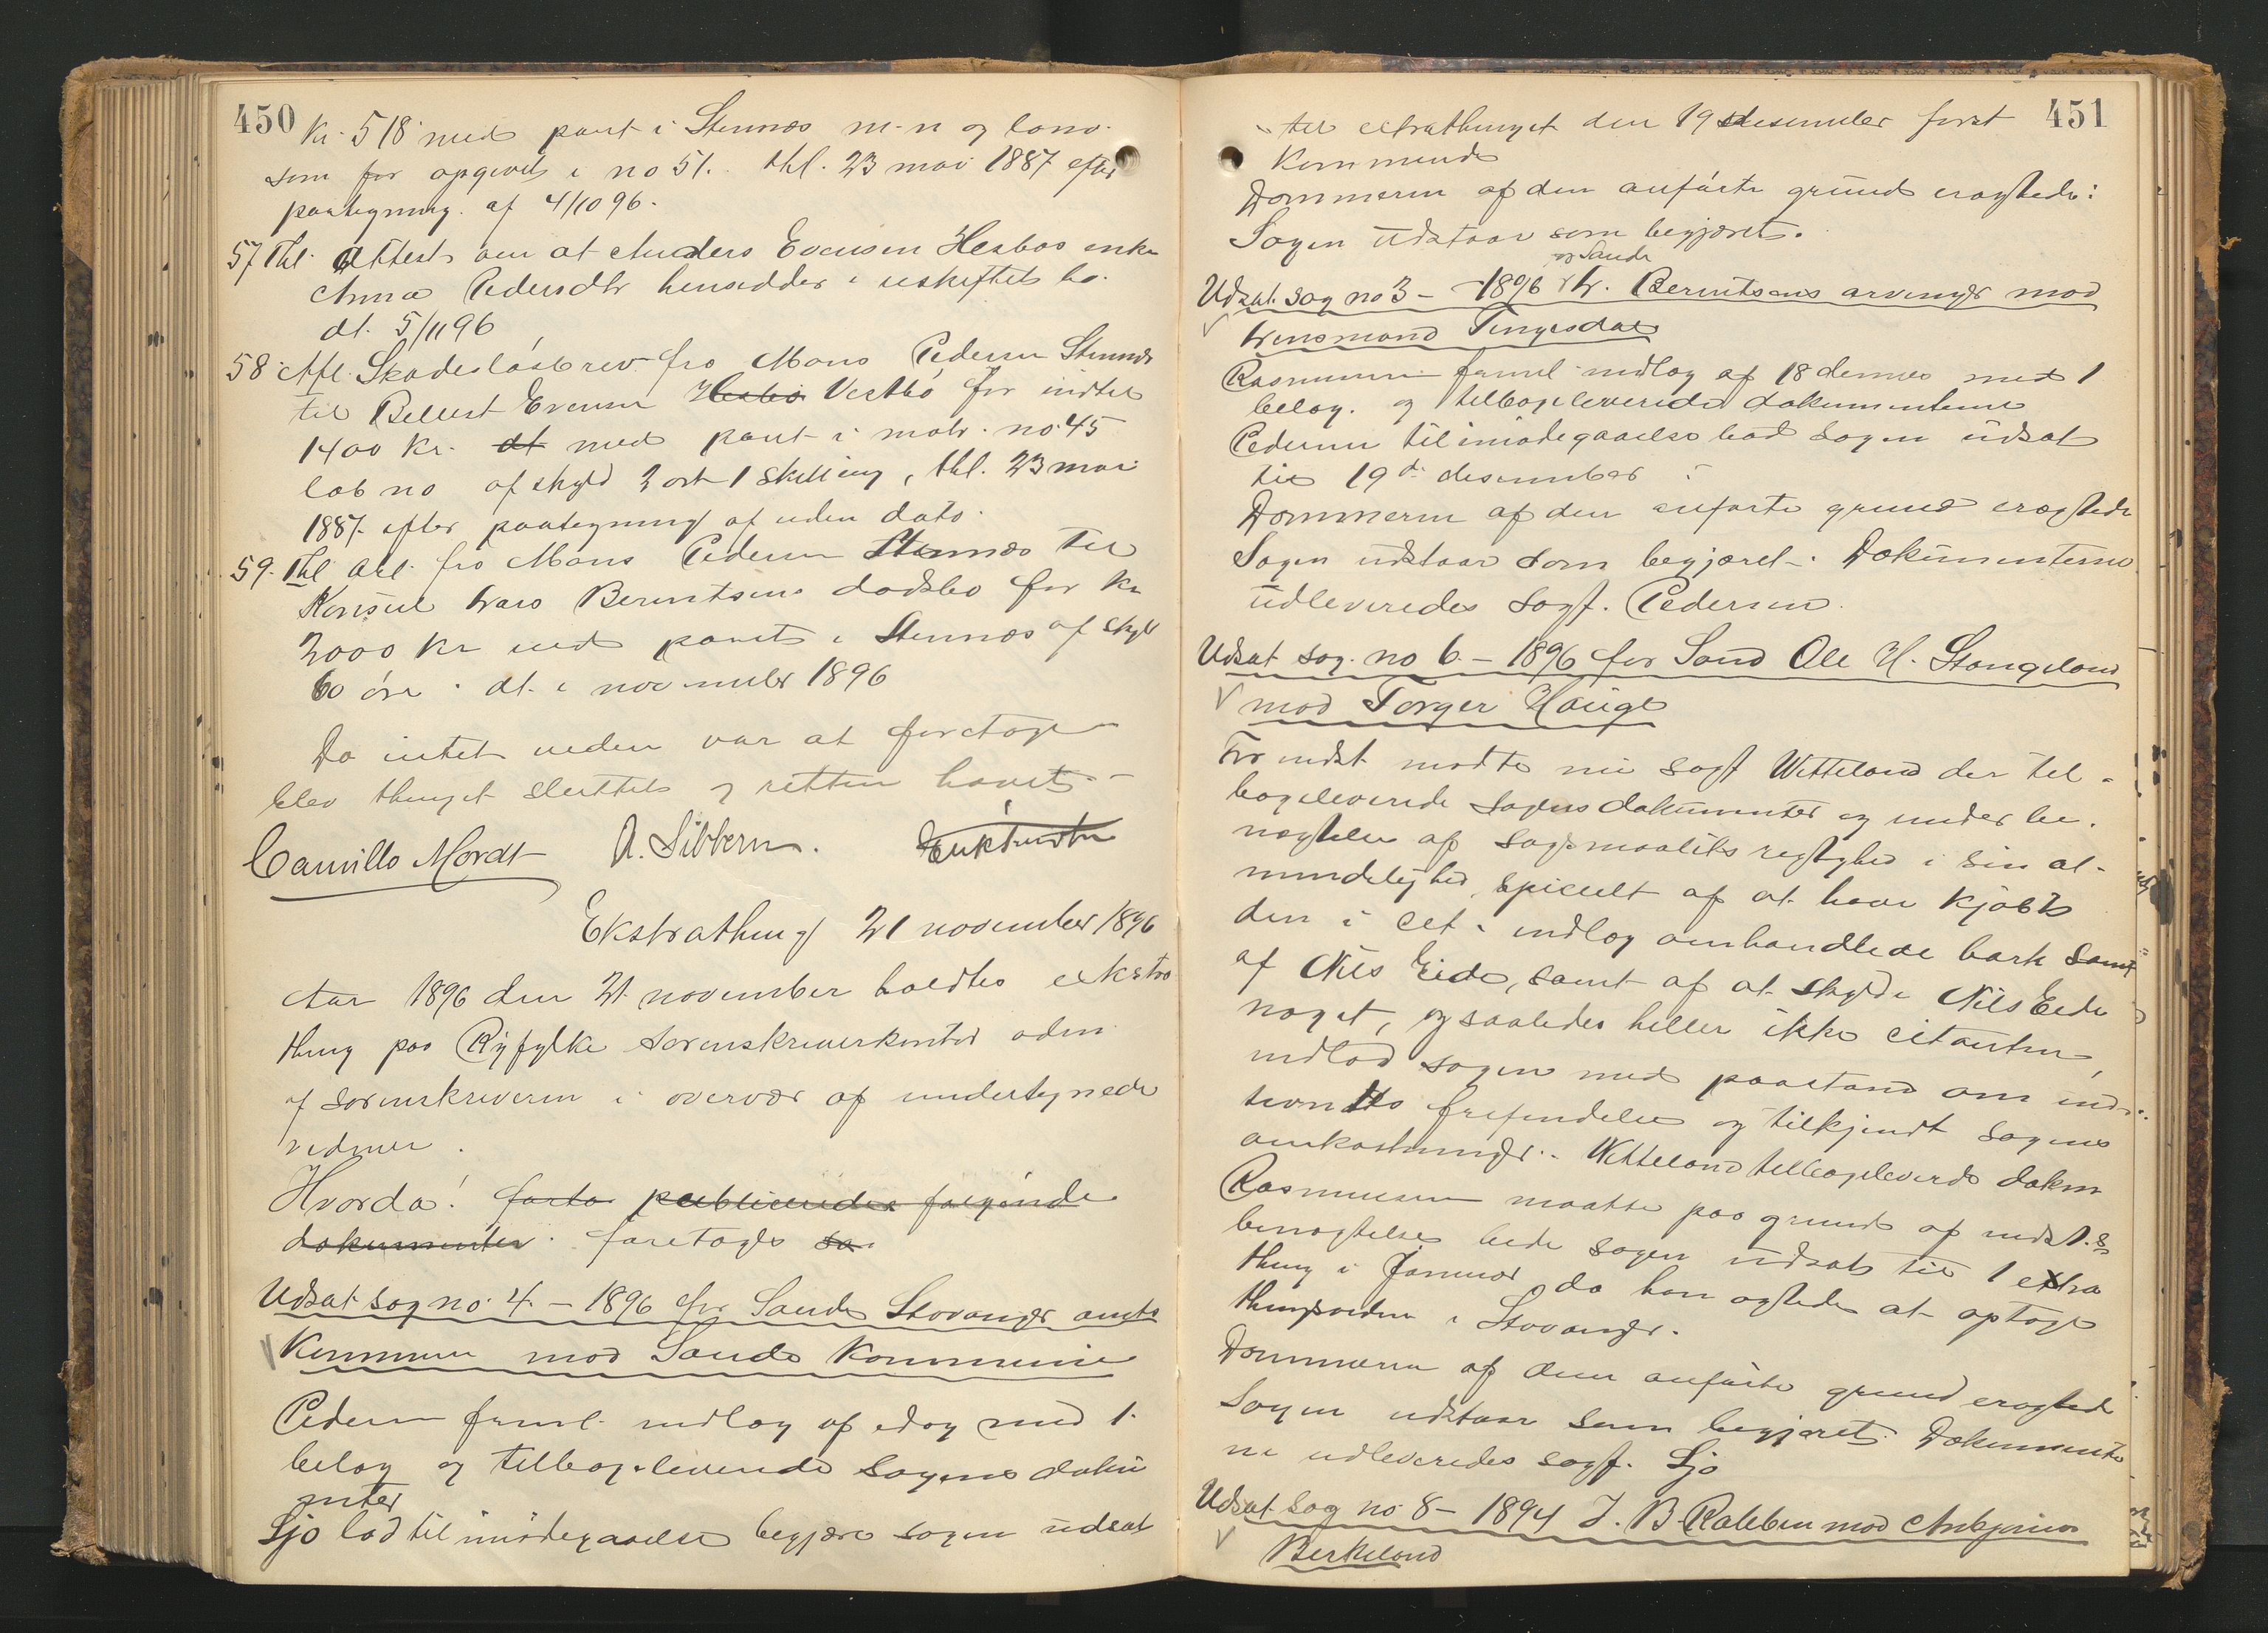 450
Kr. 518 med pant i Stennæs m. n og løsø.
som før opgivet i no 51. thl. 23 mai 1887 efter
paategning af 4/10 96.
57 Thl. Attest om at Anders Evensen Hesbøs enke
Anna Pedersdtr hensidder i uskiftet bo.
dt. 5/11 96
58 Afl. Skadesløsbrev fra Mons Pedersen Stennæs
til Evensen Hesbø Vestbø for indtil
1400 Kr. dt med pant i matr. no 45
løb no af skyld 2 ort 1 skilling, thl. 23 mai
1887 efter paategning af uden dato.
59. Thl. obl. fra Mons Pedersen Stennæs til
Konsul Lars Berentsens dødsbo for Kr
2000 Kr med pant i Stennæs af skyld
60 øre. dt. i november 1896
Da intet videre var at foretage
blev thinget sluttet og retten hævet.
Camillo Mordt A. Sibbern.
Ekstrathing 21 november 1896
Aar 1896 den 21 november holdtes ekstra
thing paa Ryfylke sorenskriverkontor
af sorenskriveren i overvær af undertegnede
vidner.
Hvorda! først publiceredes følgende
dokumenter. foretoges sa
Udsat sag no. 4 – 1896 for Sande Stavanger amts
Kommune mod Sande Kommune
Pedersen freml. indlæg af idag med 1.
belæg og tilbageleverede sagens doku
menter
Sjo lod til imødegaaelse begjære sagen udsat
451
til extrathinget den 19 desember først
Kommende
Dommeren af den anførte grund eragtede:
Sagen udstaar som begjæret.
og Sande
Udsat sag no 3 – 1896 Berentsens arvinger mod
Lensmand Tengesdal
Rasmussen freml. indlæg af 18 dennes med 1
belæg. og tilbageleverede dokumenterne
Pedersen til imødegaaelse bad sagen udsat
til 19de desember
Dommeren af den anførte grund eragtede
Sagen udstaar som begjæret. Dokumenterne
udleveredes sagf. Pedersen.
Udsat sag no 6 – 1896 for Sand Ole H. Stangeland
mod Torger Hauge
For indst mødte nu sagf Vetteland der til-
bageleverede sagens dokumenter og under be-
nægtelse af søgsmaalets rigtighed i sin al-
mindelighed, spicielt af at have kjøbt
den i cit. indlæg omhandlede bark samt
af Nils Eide, samt af at skylde Nils Eide
noget, og saaledes heller ikke citanten,
indlod sagen med paastand om ind-
stevntes frifindelse og tilkjendt sagens
omkostninger. Vetteland tilbageleverede dokm
Rasmussen maatte paa grund af indst.s
benægtelse bede sagen udsat til 1 extra
thing i Januar da han agtede at optage
thingsvidne i Stavanger.
Dommeren af den anførte grund eragtede
Sagen udstaar som begjæret. Dokumente
ne udleveredes sagf. Sjo
Udsat sag no 8 – 1894 J. B. mod Asbjørn
Birkeland